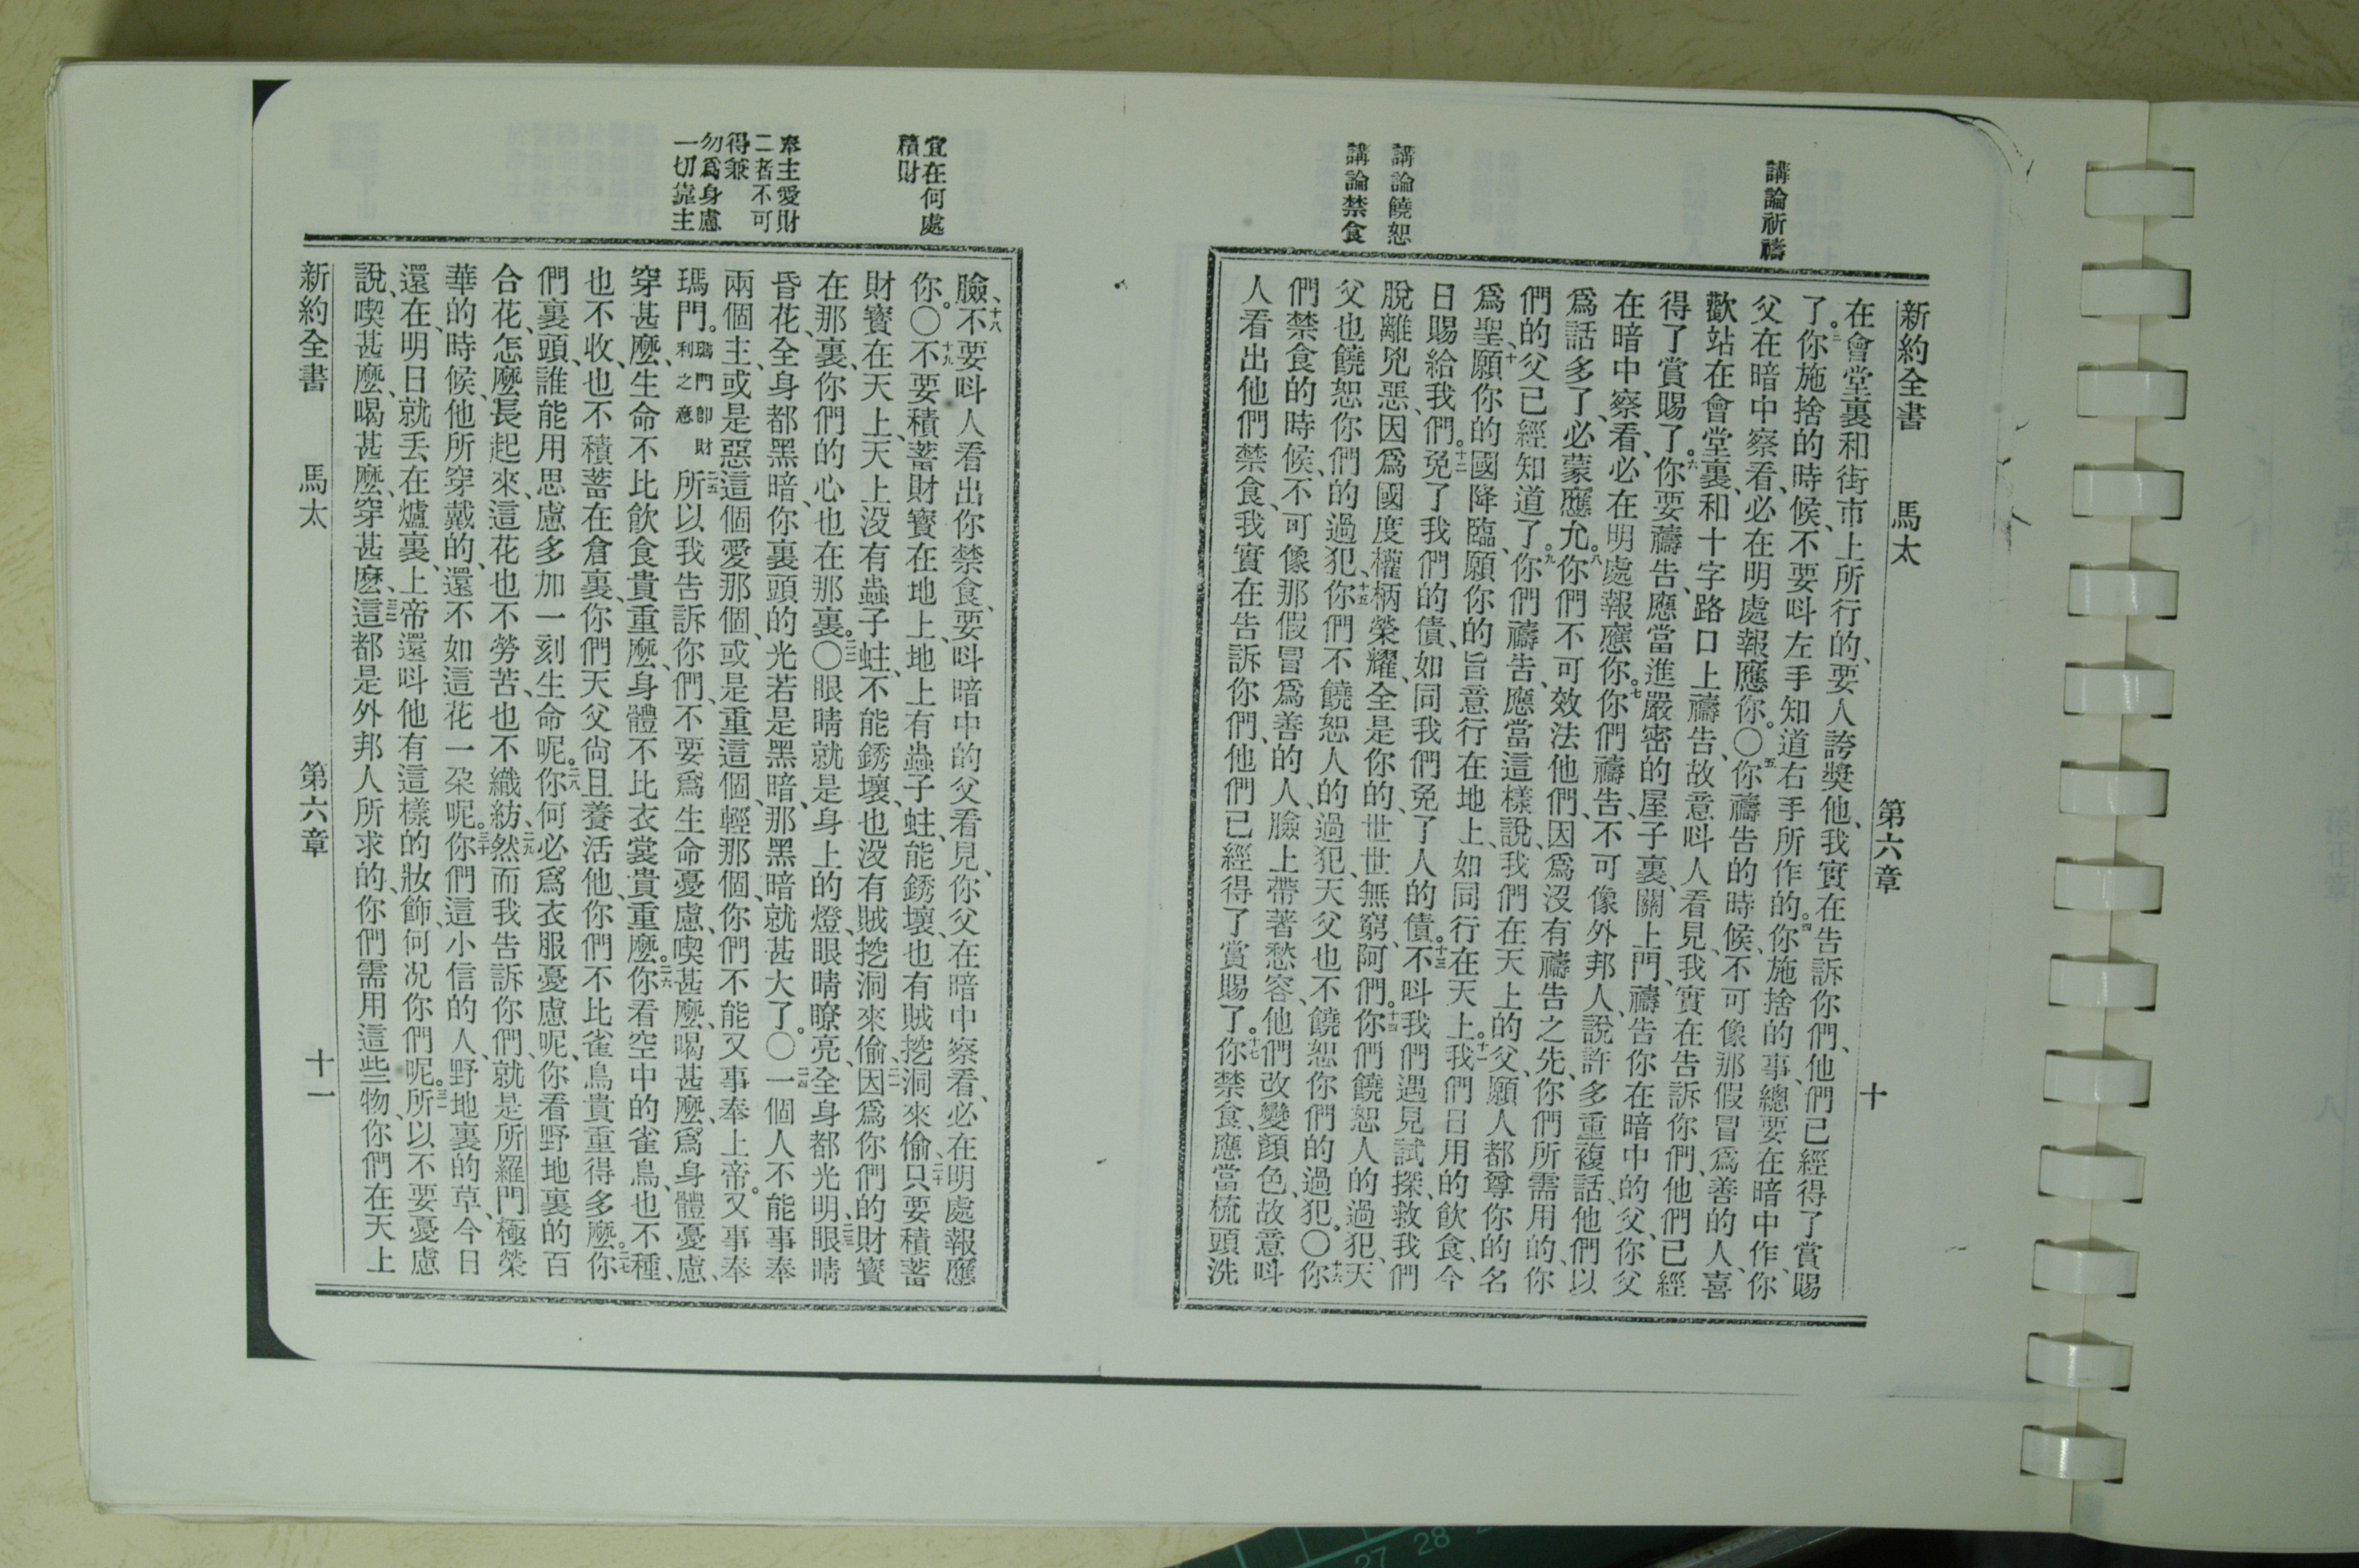 新約全書 馬太 第六章 十
講論祈禱
講論饒恕
講論禁食
在會堂裏和街市上所行的、要人誇奬他、我實在告訴你們、他們已經得了賞賜
了。三你施捨的時候、不要呌左手知道右手所作的。四你施捨的事、總要在暗中作、你
父在暗中察看、必在明處報應你。〇五你禱告的時候、不可像那假冒爲善的人、喜
歡站在會堂裏、和十字路口上禱告、故意呌人看見、我實在告訴你們、他們已經
得了賞賜了。六你要禱告、應當進嚴密的屋子裏、關上門、禱告你在暗中的父、你父
在暗中察看、必在明處報應你。七你們禱告、不可像外邦人、說許多重複話、他們以
爲話多了、必蒙應允。八你們不可效法他們、因爲沒有禱告之先、你們所需用的、你
們的父已經知道了。九你們禱告、應當這樣說、我們在天上的父、願人都尊你的名
爲聖、十願你的國降臨、願你的旨意行在地上、如同行在天上。十一我們日用的飲食、今
日賜給我們。十二免了我們的債、如同我們免了人的債。十三不呌我們遇見試探、救我們
脫離兇惡、因爲國度權柄榮耀、全是你的、世世無窮、阿們。十四你們饒恕人的過犯、天
父也饒恕你們的過犯、十五你們不饒恕人的過犯、天父也不饒恕你們的過犯。〇十六你
們禁食的時候、不可像那假冒爲善的人、臉上帶著愁容、他們改變顏色、故意呌
人看出他們禁食、我實在告訴你們、他們已經得了賞賜了。十七你禁食、應當梳頭洗
宜在何處
積財
奉主愛財
二者不可
得兼
勿爲身慮
一切靠主
臉、十八不要呌人看出你禁食、要呌暗中的父看見、你父在暗中察看、必在明處報應
你。〇十九不要積蓄財寶在地上、地上有蟲子蛀、能銹壞、也有賊挖洞來偷、二十只要積蓄
財寶在天上、天上沒有蟲子蛀、不能銹壞、也沒有賊挖洞來偷、二一因爲你們的財寶
在那裏、你們的心也在那裏。〇二二眼睛就是身上的燈、眼睛瞭亮、全身都光明、二三眼睛
昏花、全身都黑暗、你裏頭的光若是黑暗、那黑暗就甚大了。〇二四一個人不能事奉
兩個主、或是惡這個愛那個、或是重這個輕那個、你們不能又事奉上帝。又事奉
瑪門。瑪門卽財利之意二五所以我告訴你們、不要爲生命憂慮、喫甚麼、喝甚麼、爲身體憂慮、
穿甚麼、生命不比飲食貴重麼、身體不比衣裳貴重麼。二六你看空中的雀鳥、也不種、
也不收、也不積蓄在倉裏、你們天父尙且養活他、你們不比雀鳥貴重得多麼。二七你
們裏頭、誰能用思慮多加一刻生命呢。二八你何必爲衣服憂慮呢、你看野地裏的百
合花、怎麼長起來、這花也不勞苦、也不織紡、二九然而我告訴你們、就是所羅門極榮
華的時候、他所穿戴的、還不如這花一朶呢。三十你們這小信的人、野地裏的草、今日
還在、明日就丟在爐裏、上帝還呌他有這樣的妝飾、何况你們呢。三一所以不要憂慮
說、喫甚麼、喝甚麼、穿甚麼、三二這都是外邦人所求的、你們需用這些物、你們在天上
新約全書 馬太 第六章 十一
27 28